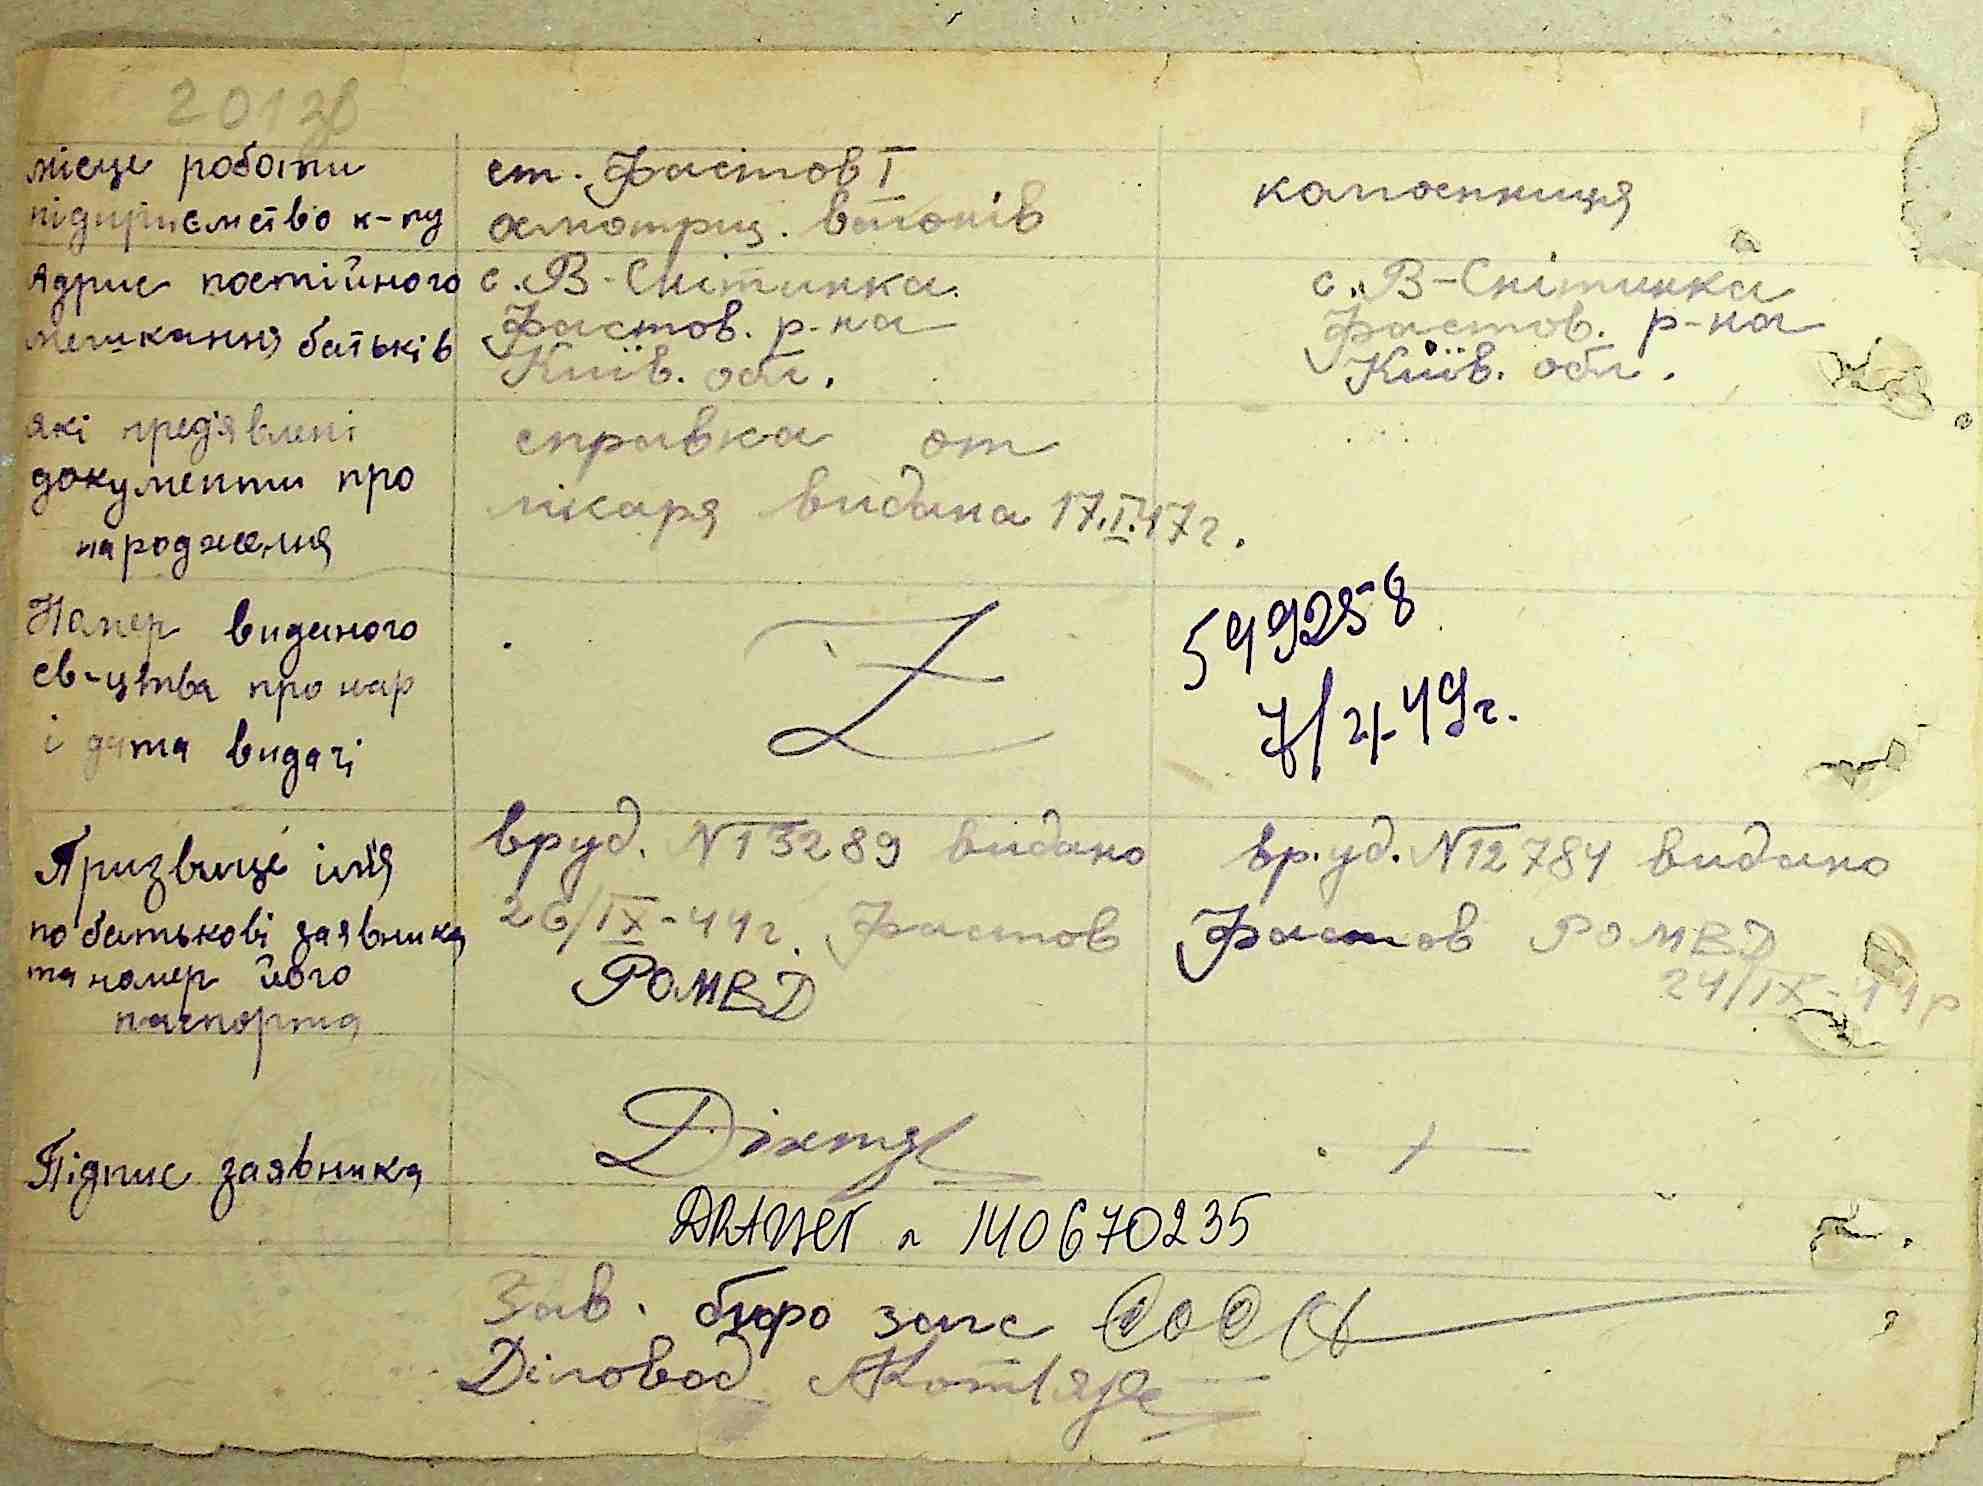 місце роботи
підприємство к-пу
ст. Фастов I
осмотрщ. вагонів
колгоспниця
Адрис постійного
мешкання батьків
с. В-Снітинка
Фастов. р-на
Київ. обл.
с. В-Снітинка
Фастов. р-на
Київ. обл.
які предявлені
документи про
народження
справка от
лікаря видана 17.I.47г.
Номер виданого
св-цтва про нар
і дата видачі
599258
49г.
Призвище імя
по батькові заявника
та номер його
паспорта
вруд. N 13289 видано
26/IX-44г. Фастов
РОМВД
вр.уд. N 12784 видано
Фастов РОМВД
24/IX-44р
Підпис заявника
Діхтяр
140670235
Зав. бюро загс
Діловод Котляр